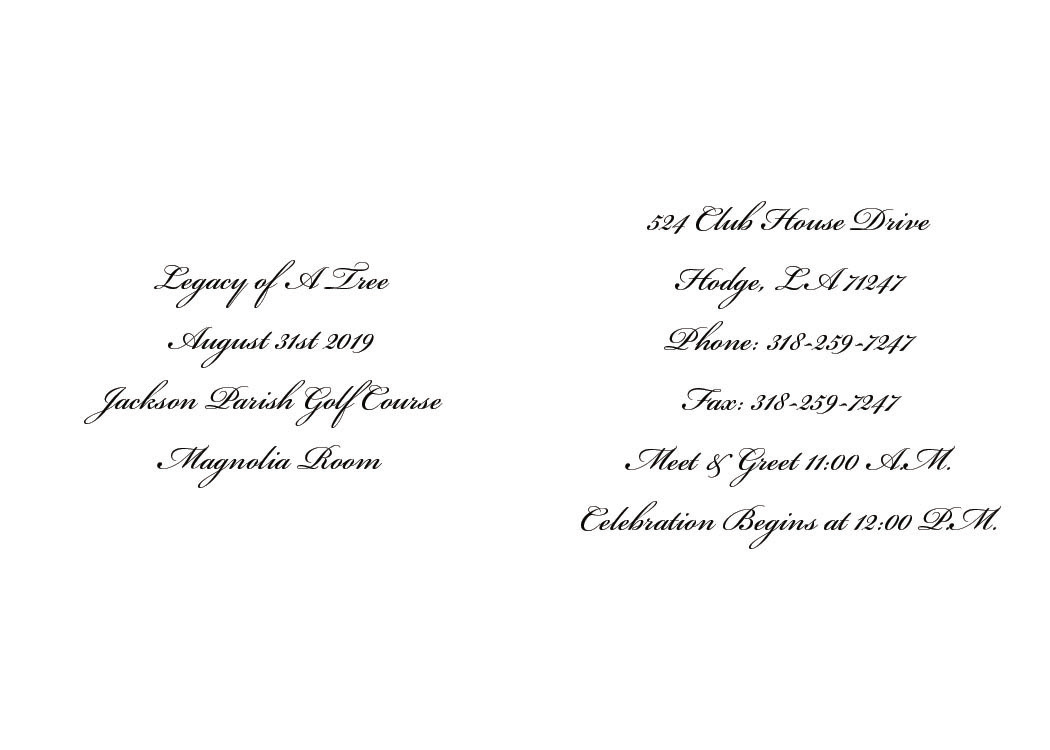 Legacy of A Tree
August 31st 2019
Jackson Parish Golf Course
Magnolia Room
524 Club House Drive
Hodge, LA 71247
Phone: 318-259-7247
Fax: 318-259-7247
Meet & Greet 11:00 A.M.
Celebration Begins at 12:00 P.M.